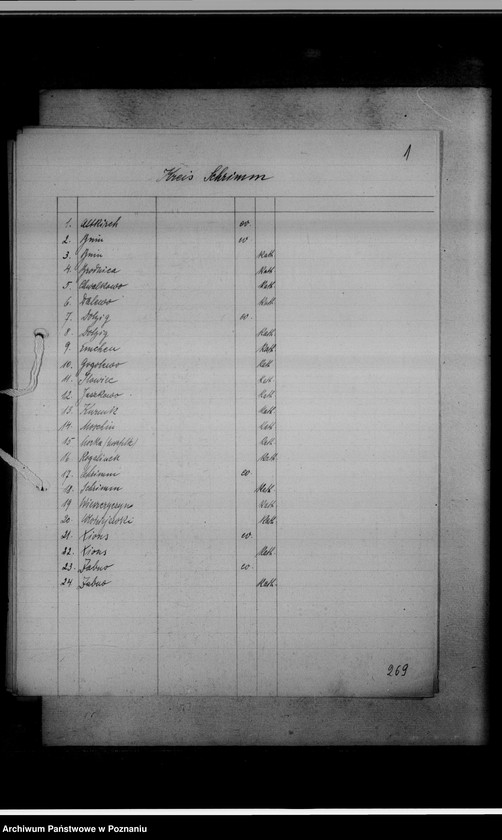 1
Kreis Schrimm
1. Altkirch ev
2. Bnin ev
3. Bnin Kath
4. Brodnica Kath
5. Chwalkowo Kath
6. Dalewo Kath
7. Dolzig ev
8. Dolzig Kath
9. Emchen Kath
10. Gogolewo Kath
11. Ilowiec Kath
12. Jaszkowo Kath
13. Kurnik Kath
14. Moschin Kath
15. Kath
16. Rogalinek Kath
17. Schrimm ev
18. Schrimm Kath
19. Wieszczyczyn Kath
20. Kath
21. Xions ev
22. Xions Kath
23. Zabno ev
24. Zabno Kath
269
Archiwum Państwowe w Poznaniu